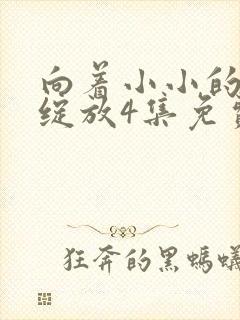 向着小小的
绽放4集免
狂奔的黑蚂蚁